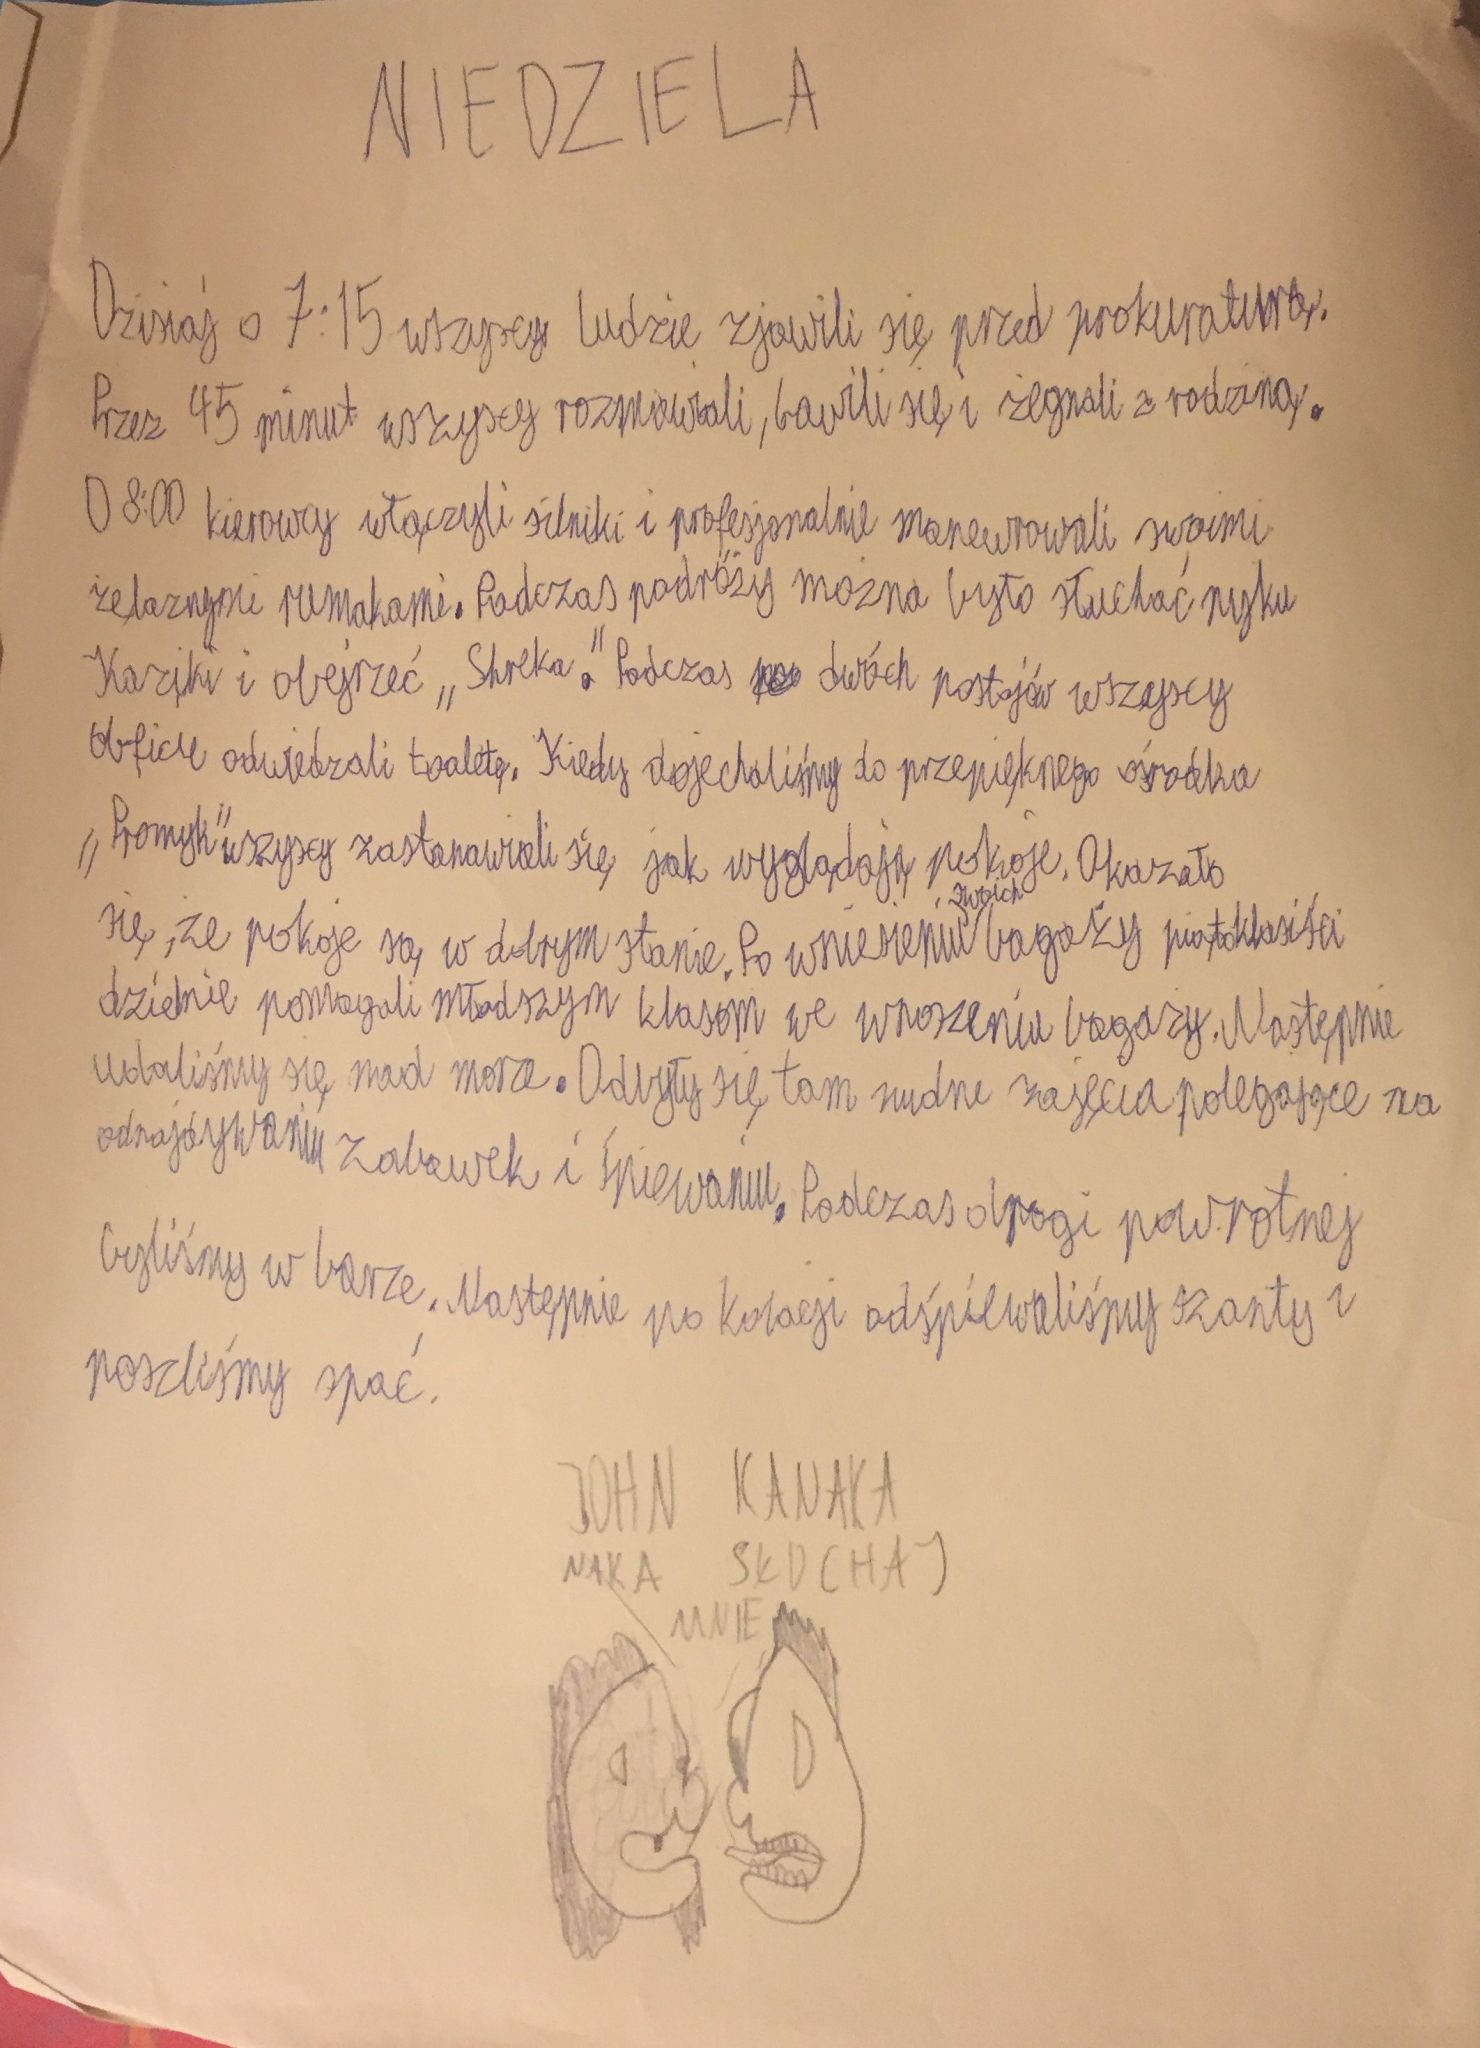 NIEDZIELA
Dzisiaj o 7:15 wszyscy ludzie zjawili się przed prokuraturą.
Przez 45 minut wszyscy rozmawiali, bawili się i żegnali z rodziną.
O 8:00 kierowcy włączyli silniki i profesjonalnie manewrowali swoimi
żelaznymi rumakami. Podczas podróży można było słuchać ryku
Kaziki i obejrzeć „Shreka." Podczas dwóch postojów wszyscy
obficie odwiedzali toaletę. Kiedy dojechaliśmy do przepięknego ośrodka
„Promyk" wszyscy zastanawiali się jak wyglądają pokoje. Okazało
się, że pokoje są w dobrym stanie. Po wniesieniu swoich bagaży piątoklasiści
dzielnie pomagali młodszym klasom we wnoszeniu bagaży. Następnie
udaliśmy się nad morze. Odbyły się tam nudne zajęcia polegające na
odnajdywaniu zabawek i śpiewaniu. Podczas drogi powrotnej
byliśmy w barze. Następnie po kolacji odśpiewaliśmy szanty i
poszliśmy spać.
JOHN KANAKA
NAKA SŁUCHAJ
MNIE